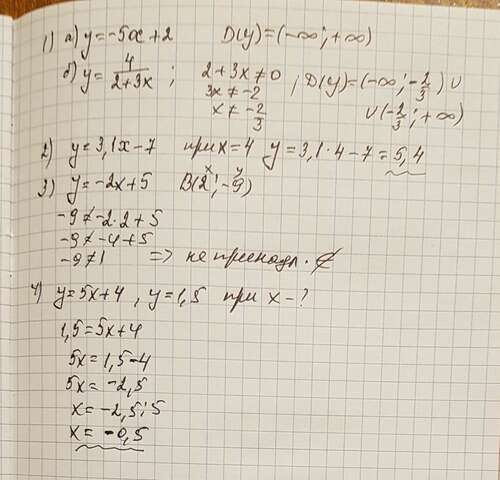 1) а) y = -5x + 2 D(y) = (-∞; +∞)
б) y = 4/(2+3x) ; 2+3x ≠ 0 , D(y) = (-∞; -2/3) ∪
3x ≠ -2
x ≠ -2/3 ∪ (-2/3; +∞)
2) y = 3,1x - 7 при x = 4 y = 3,1·4 - 7 = 5,4
3) y = -2x + 5 B(2; -9)
x y
-9 ≠ -2·2 + 5
-9 ≠ -4 + 5
-9 ≠ 1 => не принадл. ∉
4) y = 5x + 4 , y = 1,5 при x - ?
1,5 = 5x + 4
5x = 1,5 - 4
5x = -2,5
x = -2,5 : 5
x = -0,5